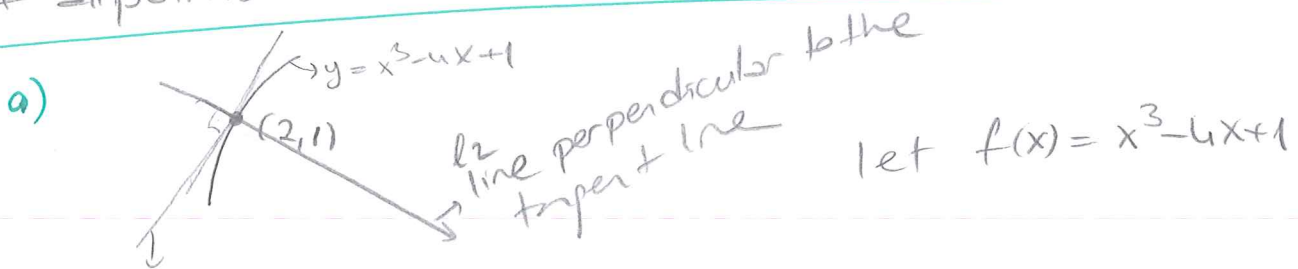 a)
y = x³-4x+1
(2,1)
l2
line perpendicular to the
tangent line
let f(x) = x³-4x+1